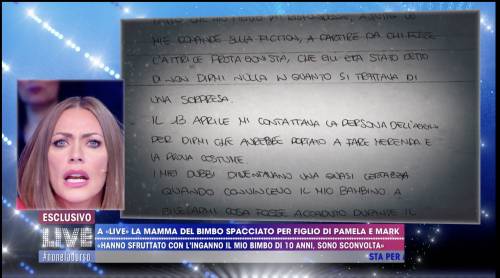 MIE DOMANDE SULLA FICTION, A PARTIRE DA CHI FOSSE
L'ATTRICE PROTAGONISTA, CHE GLI ERA STATO DETTO
DI NON DIRMI NULLA IN QUANTO SI TRATTAVA DI
UNA SORPRESA.
IL 13 APRILE MI CONTATTAVA LA PERSONA DELL'AGENZIA
PER DIRMI CHE AVREBBE PORTATO A FARE MERENDA E
LA PROVA COSTUME.
I MIEI DUBBI DIVENTAVANO UNA QUASI CERTEZZA
QUANDO CONVINCEVO IL MIO BAMBINO A
COSA FOSSE ACCADUTO DURANTE IL
ESCLUSIVO
LIVE
#noneladurso
A «LIVE» LA MAMMA DEL BIMBO SPACCIATO PER FIGLIO DI PAMELA E MARK
«HANNO SFRUTTATO CON L'INGANNO IL MIO BIMBO DI 10 ANNI, SONO SCONVOLTA»
STA PER